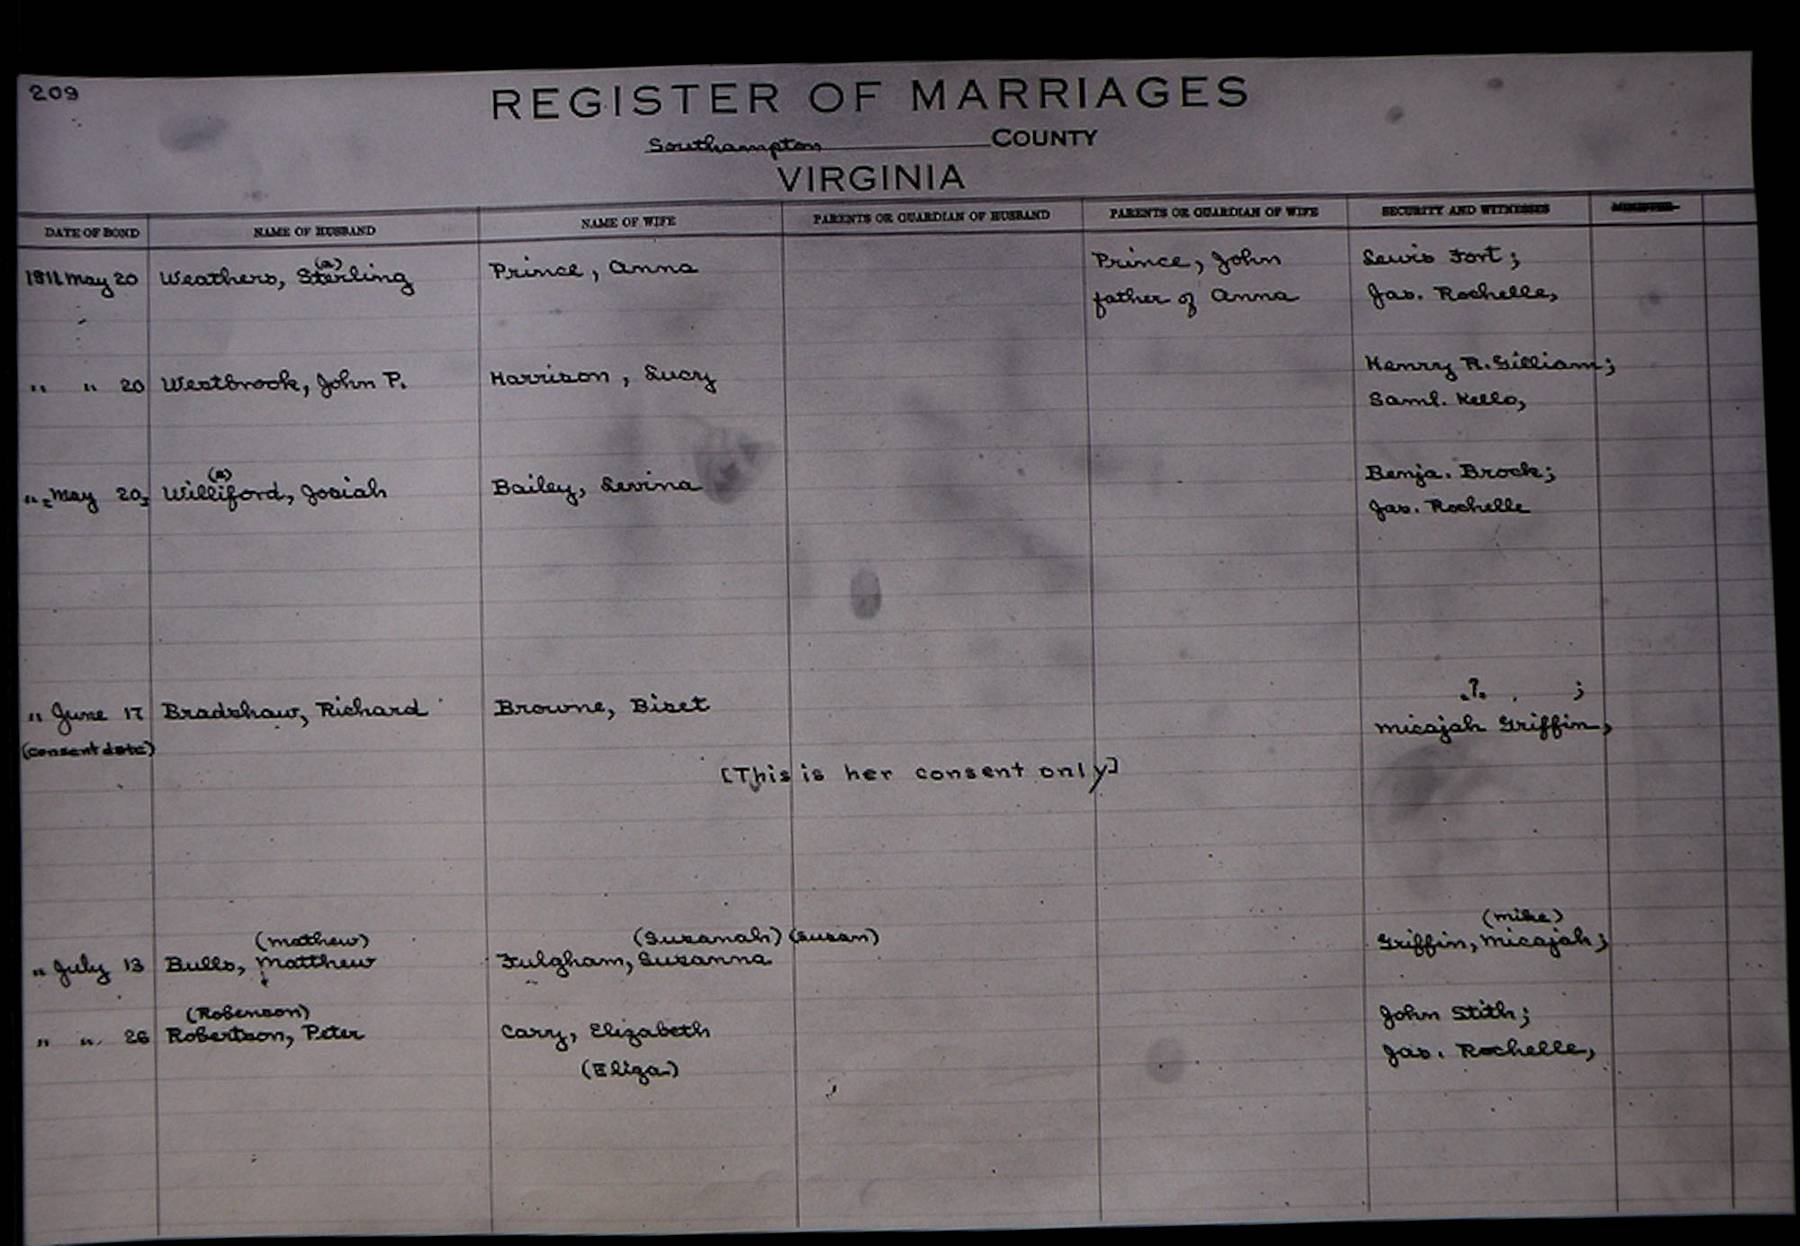 209
REGISTER OF MARRIAGES
Southampton COUNTY
VIRGINIA
DATE OF BOND NAME OF HUSBAND NAME OF WIFE PARENTS OR GUARDIAN OF HUSBAND PARENTS OR GUARDIAN OF WIFE SECURITY AND WITNESSES MINISTER
(a)
1811 May 20 Weathers, Sterling Prince, Anna Prince, John Lewis Fort;
father of Anna Jas. Rochelle,
" " 20 Westbrook, John P. Harrison, Lucy Henrry R. Gilliam;
Saml. Kello,
(a)
" May 20, Williford, Josiah Bailey, Levina Benja. Brock;
Jas. Rochelle
? ;
" June 17 Bradshaw, Richard Browne, Biset Micajah Griffin,
(consent date)
[This is her consent only]
(Mathew) (Suzanah) (Susan) (Mike)
" July 13 Bulls, Matthew Fulgham, Suzanna Griffin, Micajah;
(Robenson) John Stith;
" " 26 Robertson, Peter Cary, Elizabeth Jas. Rochelle,
(Eliza)